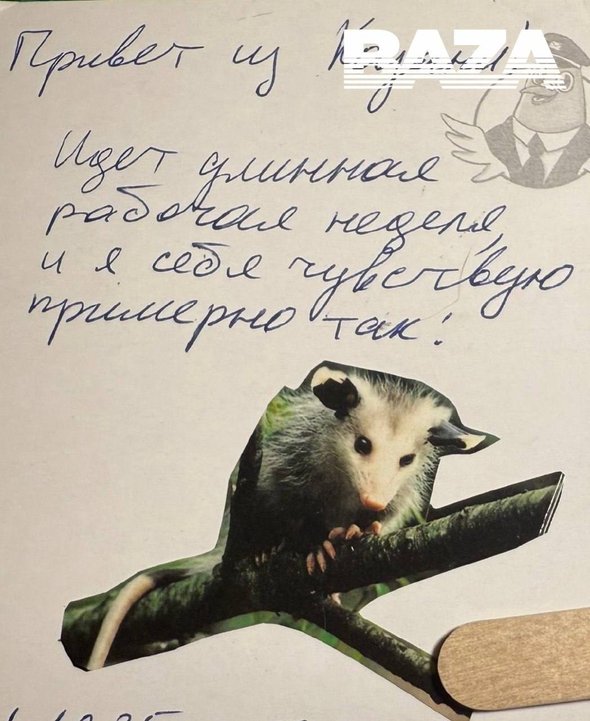 Привет из
BAZA
Идет длинная
рабочая неделя,
и я себя чувствую
примерно так!